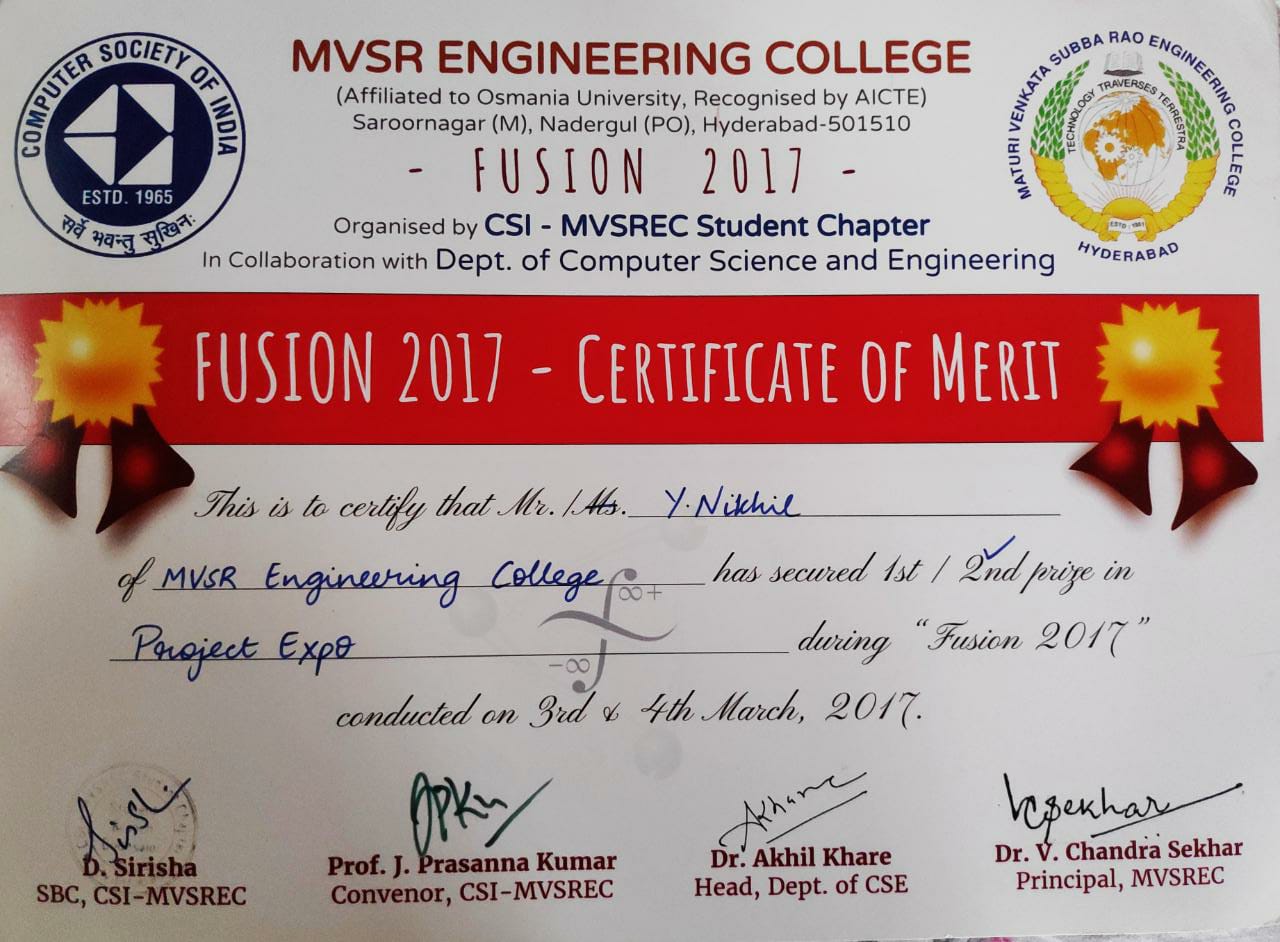 COMPUTER SOCIETY OF INDIA
ESTD. 1965
सर्वे भवन्तु सुखिनः
MVSR ENGINEERING COLLEGE
(Affiliated to Osmania University, Recognised by AICTE)
Saroornagar (M), Nadergul (PO), Hyderabad-501510
- FUSION 2017 -
Organised by CSI - MVSREC Student Chapter
In Collaboration with Dept. of Computer Science and Engineering
MATURI VENKATA SUBBA RAO ENGINEERING COLLEGE
TECHNOLOGY TRAVERSES TERRESTRA
ESTD : 1981
HYDERABAD
FUSION 2017 - CERTIFICATE OF MERIT
This is to certify that Mr. /Ms. Y. Nikhil
of MVSR Engineering College has secured 1st / 2nd prize in
Project Expo during "Fusion 2017"
∞+
-∞
conducted on 3rd & 4th March, 2017.
D. Sirisha
SBC, CSI-MVSREC
Prof. J. Prasanna Kumar
Convenor, CSI-MVSREC
Akhare
Dr. Akhil Khare
Head, Dept. of CSE
Vcsekhar
Dr. V. Chandra Sekhar
Principal, MVSREC